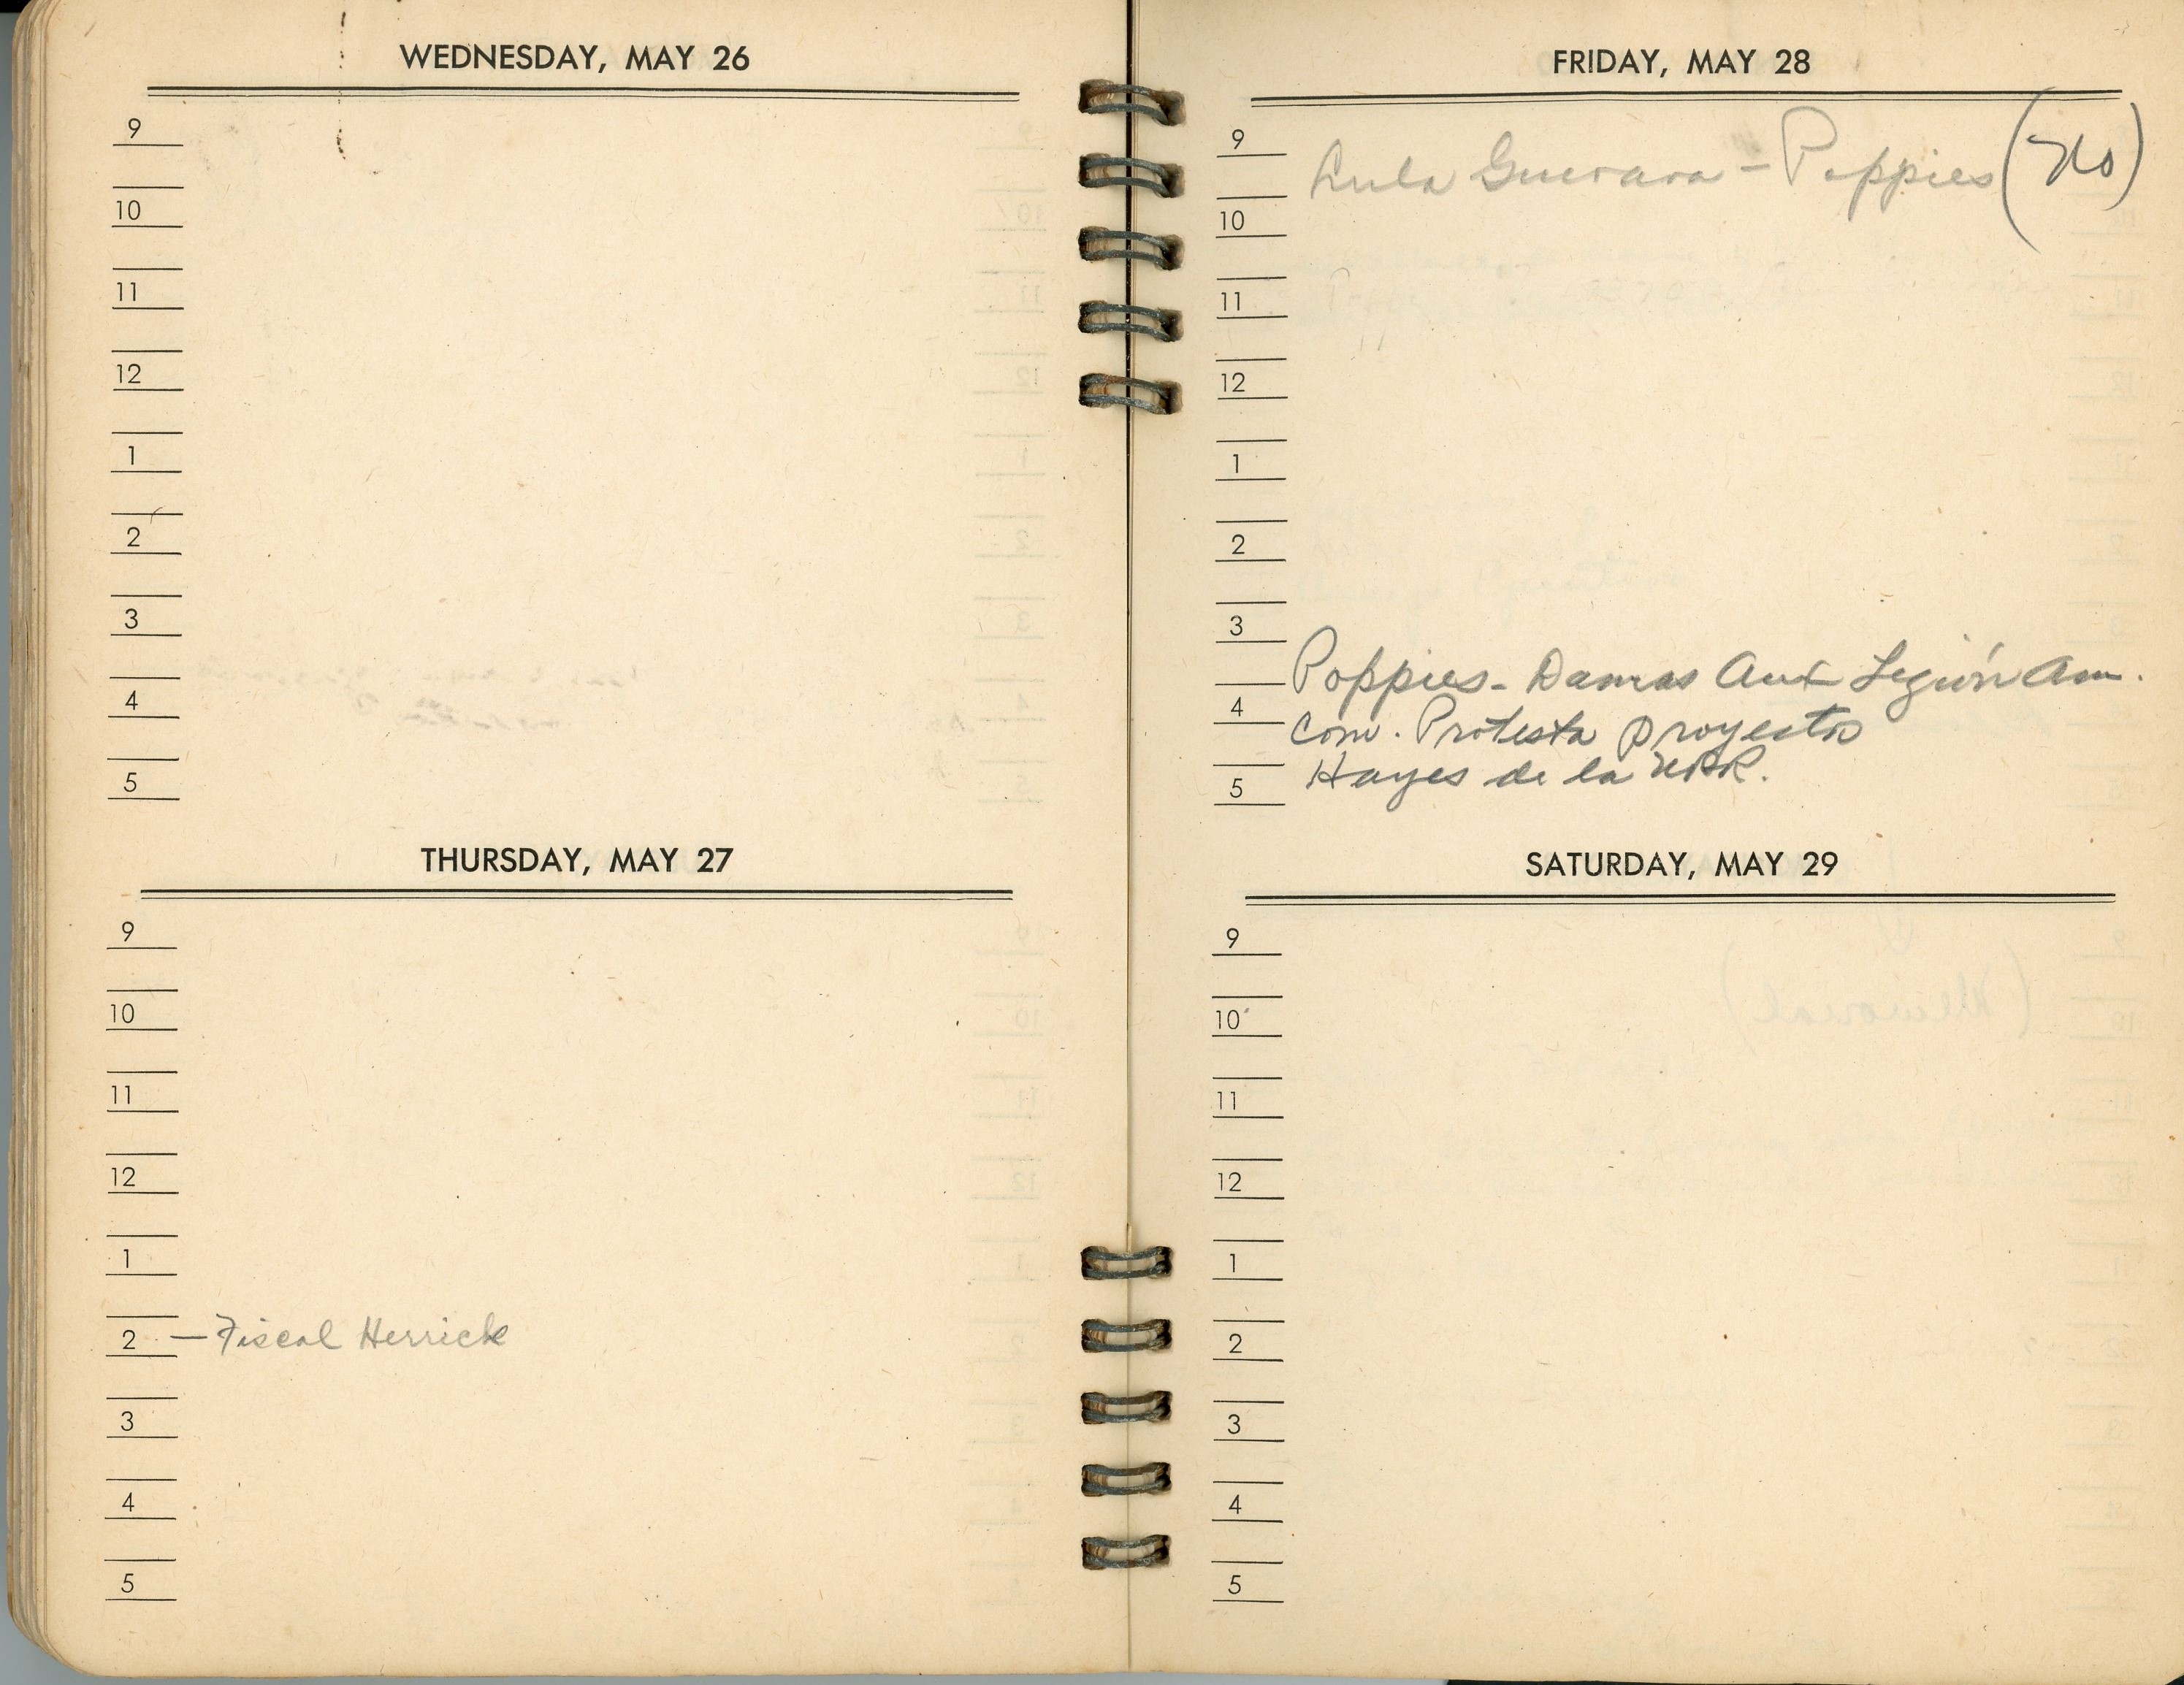 WEDNESDAY, MAY 26
9
10
11
12
1
2
3
4
5
THURSDAY, MAY 27
9
10
11
12
1
2 — Fiscal Herrick
3
4
5
FRIDAY, MAY 28
9 Lula Guevara - Poppies (No)
10
11
12
1
2
3
Poppies - Damas Aux Legión Am.
4 Com. Protesta proyectos
5 Hayes de la UPR.
SATURDAY, MAY 29
9
10
11
12
1
2
3
4
5